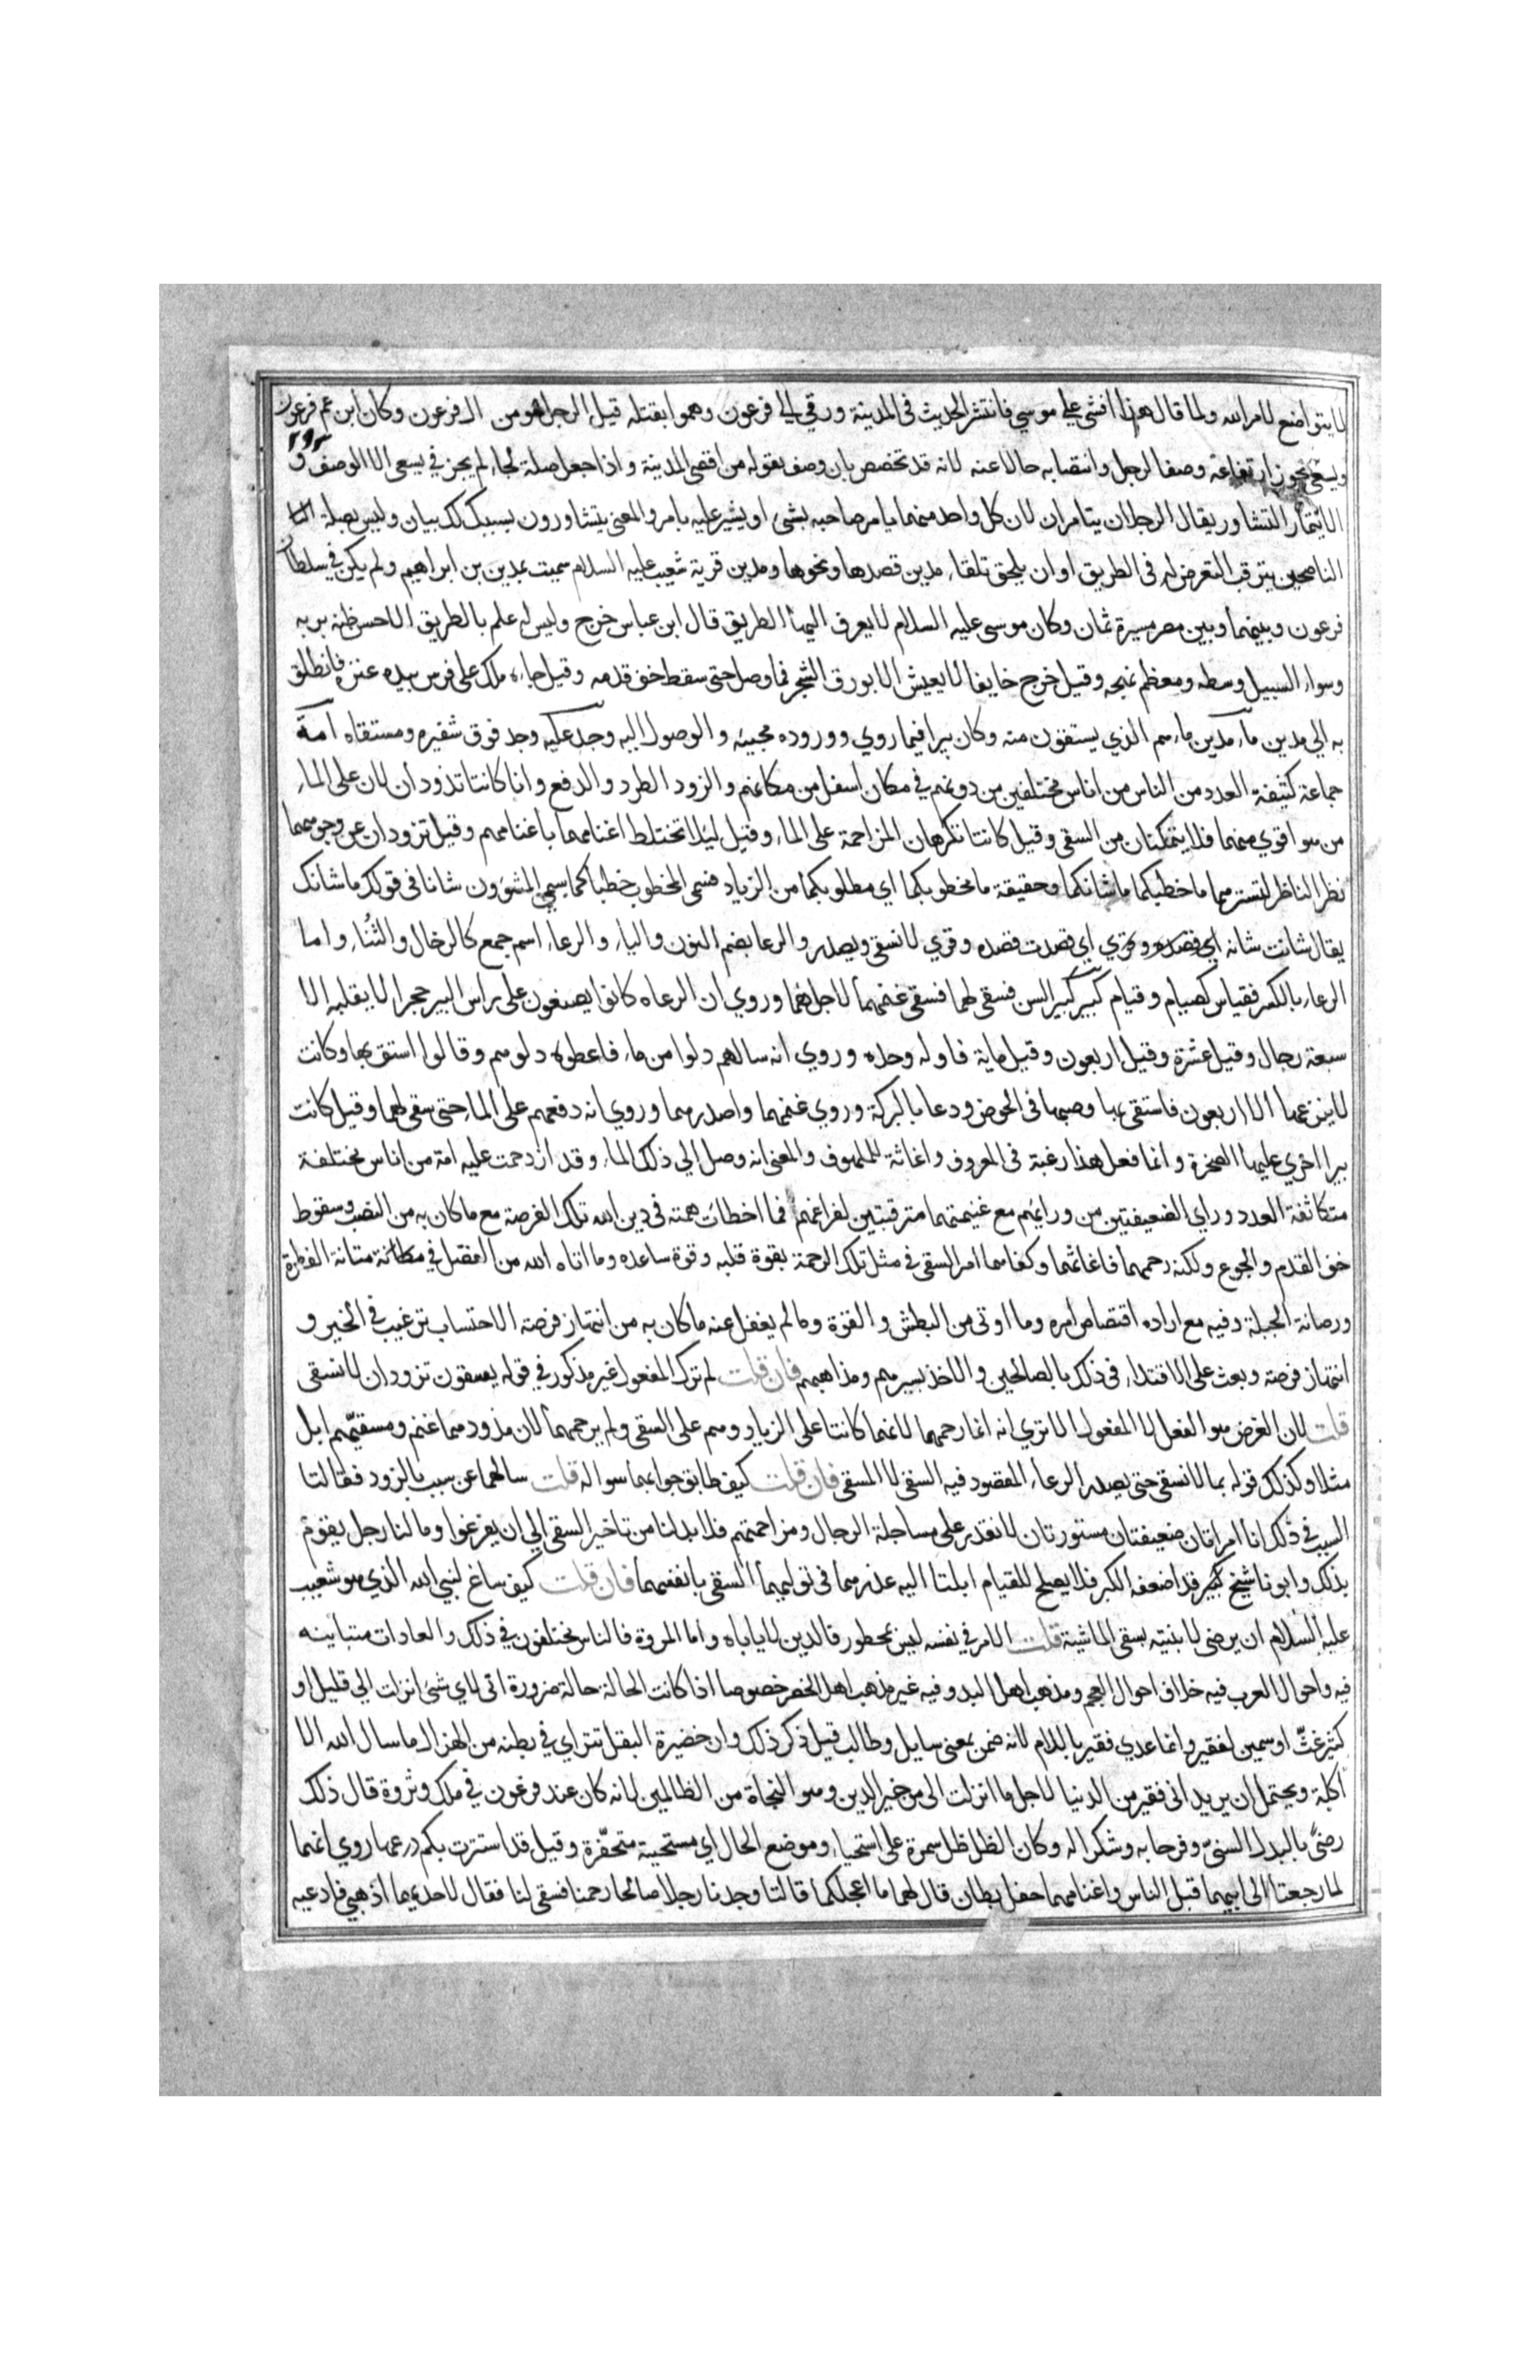 لا يتواضع لامر الله ولما قال هذا افشى على موسي فانتشر الحديث فى المدينة ورقي الي فرعون وهموا بقتله قيل الرجل هو من ال فرعون وكان ابن عم فرعون
ويسعى يجوز ارتفاعه وصفا لرجل وانتصابه حالا عنه لانه قد تخصص بان وصف بقوله من اقصى المدينة واذا جعل صلة لجاء لم يجز في يسعى الا الوصف و
الايتمار التشاور يقال الرجلان يتامران لان كل واحد منهما يامر صاحبه بشئ او يشير عليه بامر والمعني يتشاورون بسببك لك بيان وليس بصلة
الناصحين يترقب التعرض له فى الطريق او ان يلحق تلقاء مدين قصدها ونحوها ومدين قرية شعيب عليه السلام سميت بمدين بن ابراهيم ولم يكن في سلطان
فرعون وبينها وبين مصر مسيرة ثمان وكان موسى عليه السلام لا يعرف اليها الطريق قال ابن عباس خرج وليس له علم بالطريق الا حسن ظنه بربه
وسواء السبيل وسطه ومعظم نهجه وقيل خرج خايفا لا يعيش الا بورق الشجر فما وصل حتى سقط خف قدمه وقيل جاءه ملك على فرس بيده عنزه فانطلق
به الي مدين ماء مدين ماءهم الذي يستقون منه وكان بيرا فيما روي ووروده مجيئه والوصول اليه وجد عليه وجد فوق شفيره ومستقاه امة
جماعة كثيفة العدد من الناس من اناس مختلفين من دونهم في مكان اسفل من مكانهم والزود الطرد والدفع وانا كانتا تذودان لان على الماء
من هو اقوي منهما فلا يتمكنان من السقى وقيل كانتا تكرهان المزاحمة على الماء وقيل ليلا تختلط اغنامهما باغنامهم وقيل تزودان عن وجوههما
نظر الناظر لتسترهما ما خطبكما ما شانكما وحقيقة ما مخطوبكما اي مطلوبكما من الزياد فسمى المخطوب خطبا كما يسمي المشؤون شانا في قولك ما شانك
يقال شانت شانه اي قصدت قصده وقري لا نسقى ويصدر والرعا بضم النون والياء والرعاء اسم جمع كالرخال والثناء واما
الرعاء بالكسر فقياس كصيام وقيام كبير كبير السن فسقى لهما فسقى غنمهما لاجلهما وروي ان الرعاه كانوا يضعون على راس البير حجرا لا يقلبه الا
سبعة رجال وقيل عشرة وقيل اربعون وقيل ماية فاوله وحده وروي انه سالهم دلوا من ماء فاعطوه دلوهم وقالوا استق بها وكانت
لا ينزعها الا اربعون فاستقى بها وصبها فى الحوض ودعا بالبركة وروي غنمهما واصدرهما وروي انه دفعهم على الماء حتى سقى لهما وقيل كانت
بيرا اخري عليها الصخرة وانما فعل هذا رغبة فى المعروف واغاثة للملهوف والمعنى انه وصل الي ذلك الماء وقد ازدحمت عليه امة من اناس مختلفة
متكاثفة العدد وراي الضعيفتين من ورائهم مع غنيمتهما مترقبتين لفراغهم فما اخطات همته فى دين الله تلك الفرصة مع ما كان به من النصب وسقوط
خف القدم والجوع ولكنه رحمهما فاغاثهما وكفاهما امر السقى في مثل تلك الرحمة بقوة قلبه وقوة ساعده وما اتاه الله من الفضل في متانة الفطرة
ورصانة الجبلة وفيه مع اراده اقتصاص امره وما اوتى من البطش والقوة وما لم يغفل عنه ما كان به من انتهاز فرصة الاحتساب ترغيب في الخير و
انتهاز فرصه وبعث على الاقتداء في ذلك بالصالحين والاخذ بسيرهم ومذاهبهم فان قلت لم ترك المفعول غير مذكور في قوله يسقون تزودان لا نسقى
قلت لان الغرض هو الفعل لا المفعول الا تري انه انما رحمهما لانهما كانتا على الزياد وهم على السقى ولم يرحمهما لان مذودهما غنم ومسقيهم ابل
مثلا وكذلك قوله بما لا نسقى حتى يصدر الرعاء المقصود فيه السقى لا المسقى فان قلت كيف طابق جوابهما سواله قلت سالهما عن سبب الزود فقالتا
السبب في ذلك انا امراتان ضعيفتان مستورتان لا نقدر على مساجلة الرجال ومزاحمتهم فلا بد لنا من تاخير السقى الي ان يفرغوا وما لنا رجل يقوم
بذلك وابونا شيخ كبير قد اضعفه الكبر فلا يصلح للقيام ابلتا اليه عذرهما فى توليهما السقى بانفسهما فان قلت كيف ساغ لنبي الله الذي هو شعيب
عليه السلام ان يرضى لابنتيه بسقى الماشية قلت الامر في نفسه ليس بمحظور فالدين لا ياباه واما المروة فالناس مختلفون في ذلك والعادات متباينه
فيه واحوال العرب فيه خلاف احوال العجم ومذهب اهل البدو فيه غير مذهب اهل الحضر خصوصا اذا كانت الحالة حالة ضرورة انى لاي شئ انزلت الي قليل او
كثير غث او سمين لفقير وانما عدي فقير باللام لانه ضمن بمعنى سايل وطالب قيل ذكر ذلك وان خضيرة البقل تتراي في بطنه من الهزال ما سال الله الا
اكلة ويحتمل ان يريد انى فقير من الدنيا لاجل ما انزلت الى من خير الدين وهو النجاة من الظالمين لانه كان عند فرعون في ملك وثروة قال ذلك
رضىً بالبدل السنىّ وفرحا به وشكرا له وكان الظل ظل سمرة على استحياء وموضع الحال اي مستحيية متخفّرة وقيل قد استترت بكم درعها روي انهما
لما رجعتا الى ابيهما قبل الناس واغنامهما حفل بطان قال لهما ما اعجلكما قالتا وجدنا رجلا صالحا رحمنا فسقى لنا فقال لاحديهما اذهبي فادعيه